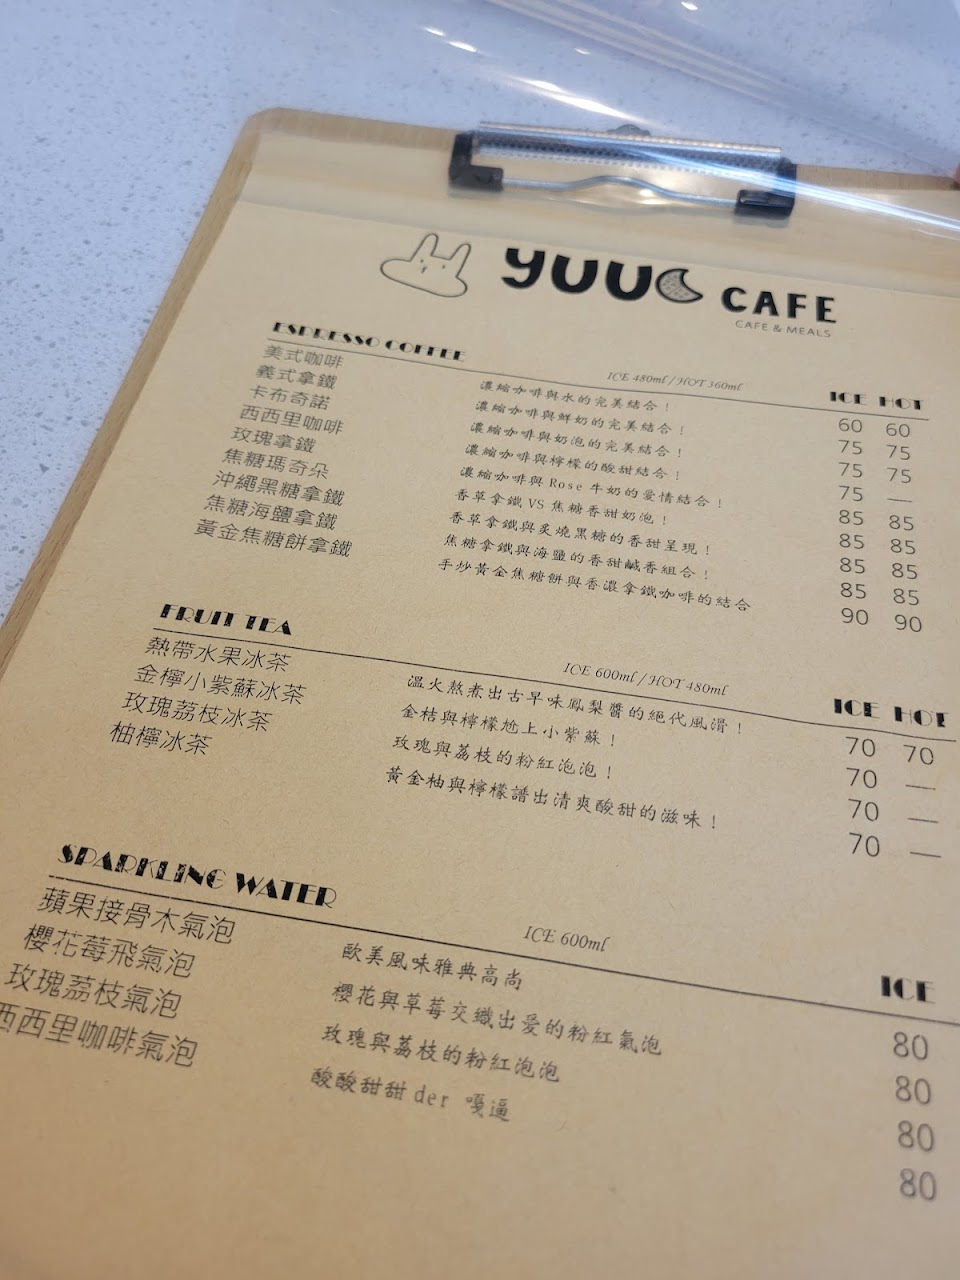 yuu CAFE
CAFE & MEALS
ESPRESSO COFFEE ICE 480ml / HOT 360ml ICE HOT
美式咖啡 濃縮咖啡與水的完美結合！ 60 60
義式拿鐵 濃縮咖啡與鮮奶的完美結合！ 75 75
卡布奇諾 濃縮咖啡與奶泡的完美結合！ 75 75
西西里咖啡 濃縮咖啡與檸檬的酸甜結合！ 75 —
玫瑰拿鐵 濃縮咖啡與Rose牛奶的愛情結合！ 85 85
焦糖瑪奇朵 香草拿鐵VS焦糖香甜奶泡！ 85 85
沖繩黑糖拿鐵 香草拿鐵與炙燒黑糖的香甜呈現！ 85 85
焦糖海鹽拿鐵 焦糖拿鐵與海鹽的香甜鹹香組合！ 85 85
黃金焦糖餅拿鐵 手炒黃金焦糖餅與香濃拿鐵咖啡的結合 90 90
FRUIT TEA ICE 600ml / HOT 480ml ICE HOT
熱帶水果冰茶 溫火熬煮出古早味鳳梨醬的絕代風滑！ 70 70
金檸小紫蘇冰茶 金桔與檸檬尬上小紫蘇！ 70 —
玫瑰荔枝冰茶 玫瑰與荔枝的粉紅泡泡！ 70 —
柚檸冰茶 黃金柚與檸檬譜出清爽酸甜的滋味！ 70 —
SPARKLING WATER ICE 600ml ICE
蘋果接骨木氣泡 歐美風味雅典高尚 80
櫻花莓飛氣泡 櫻花與草莓交織出愛的粉紅氣泡 80
玫瑰荔枝氣泡 玫瑰與荔枝的粉紅泡泡 80
西西里咖啡氣泡 酸酸甜甜der 嘎逼 80